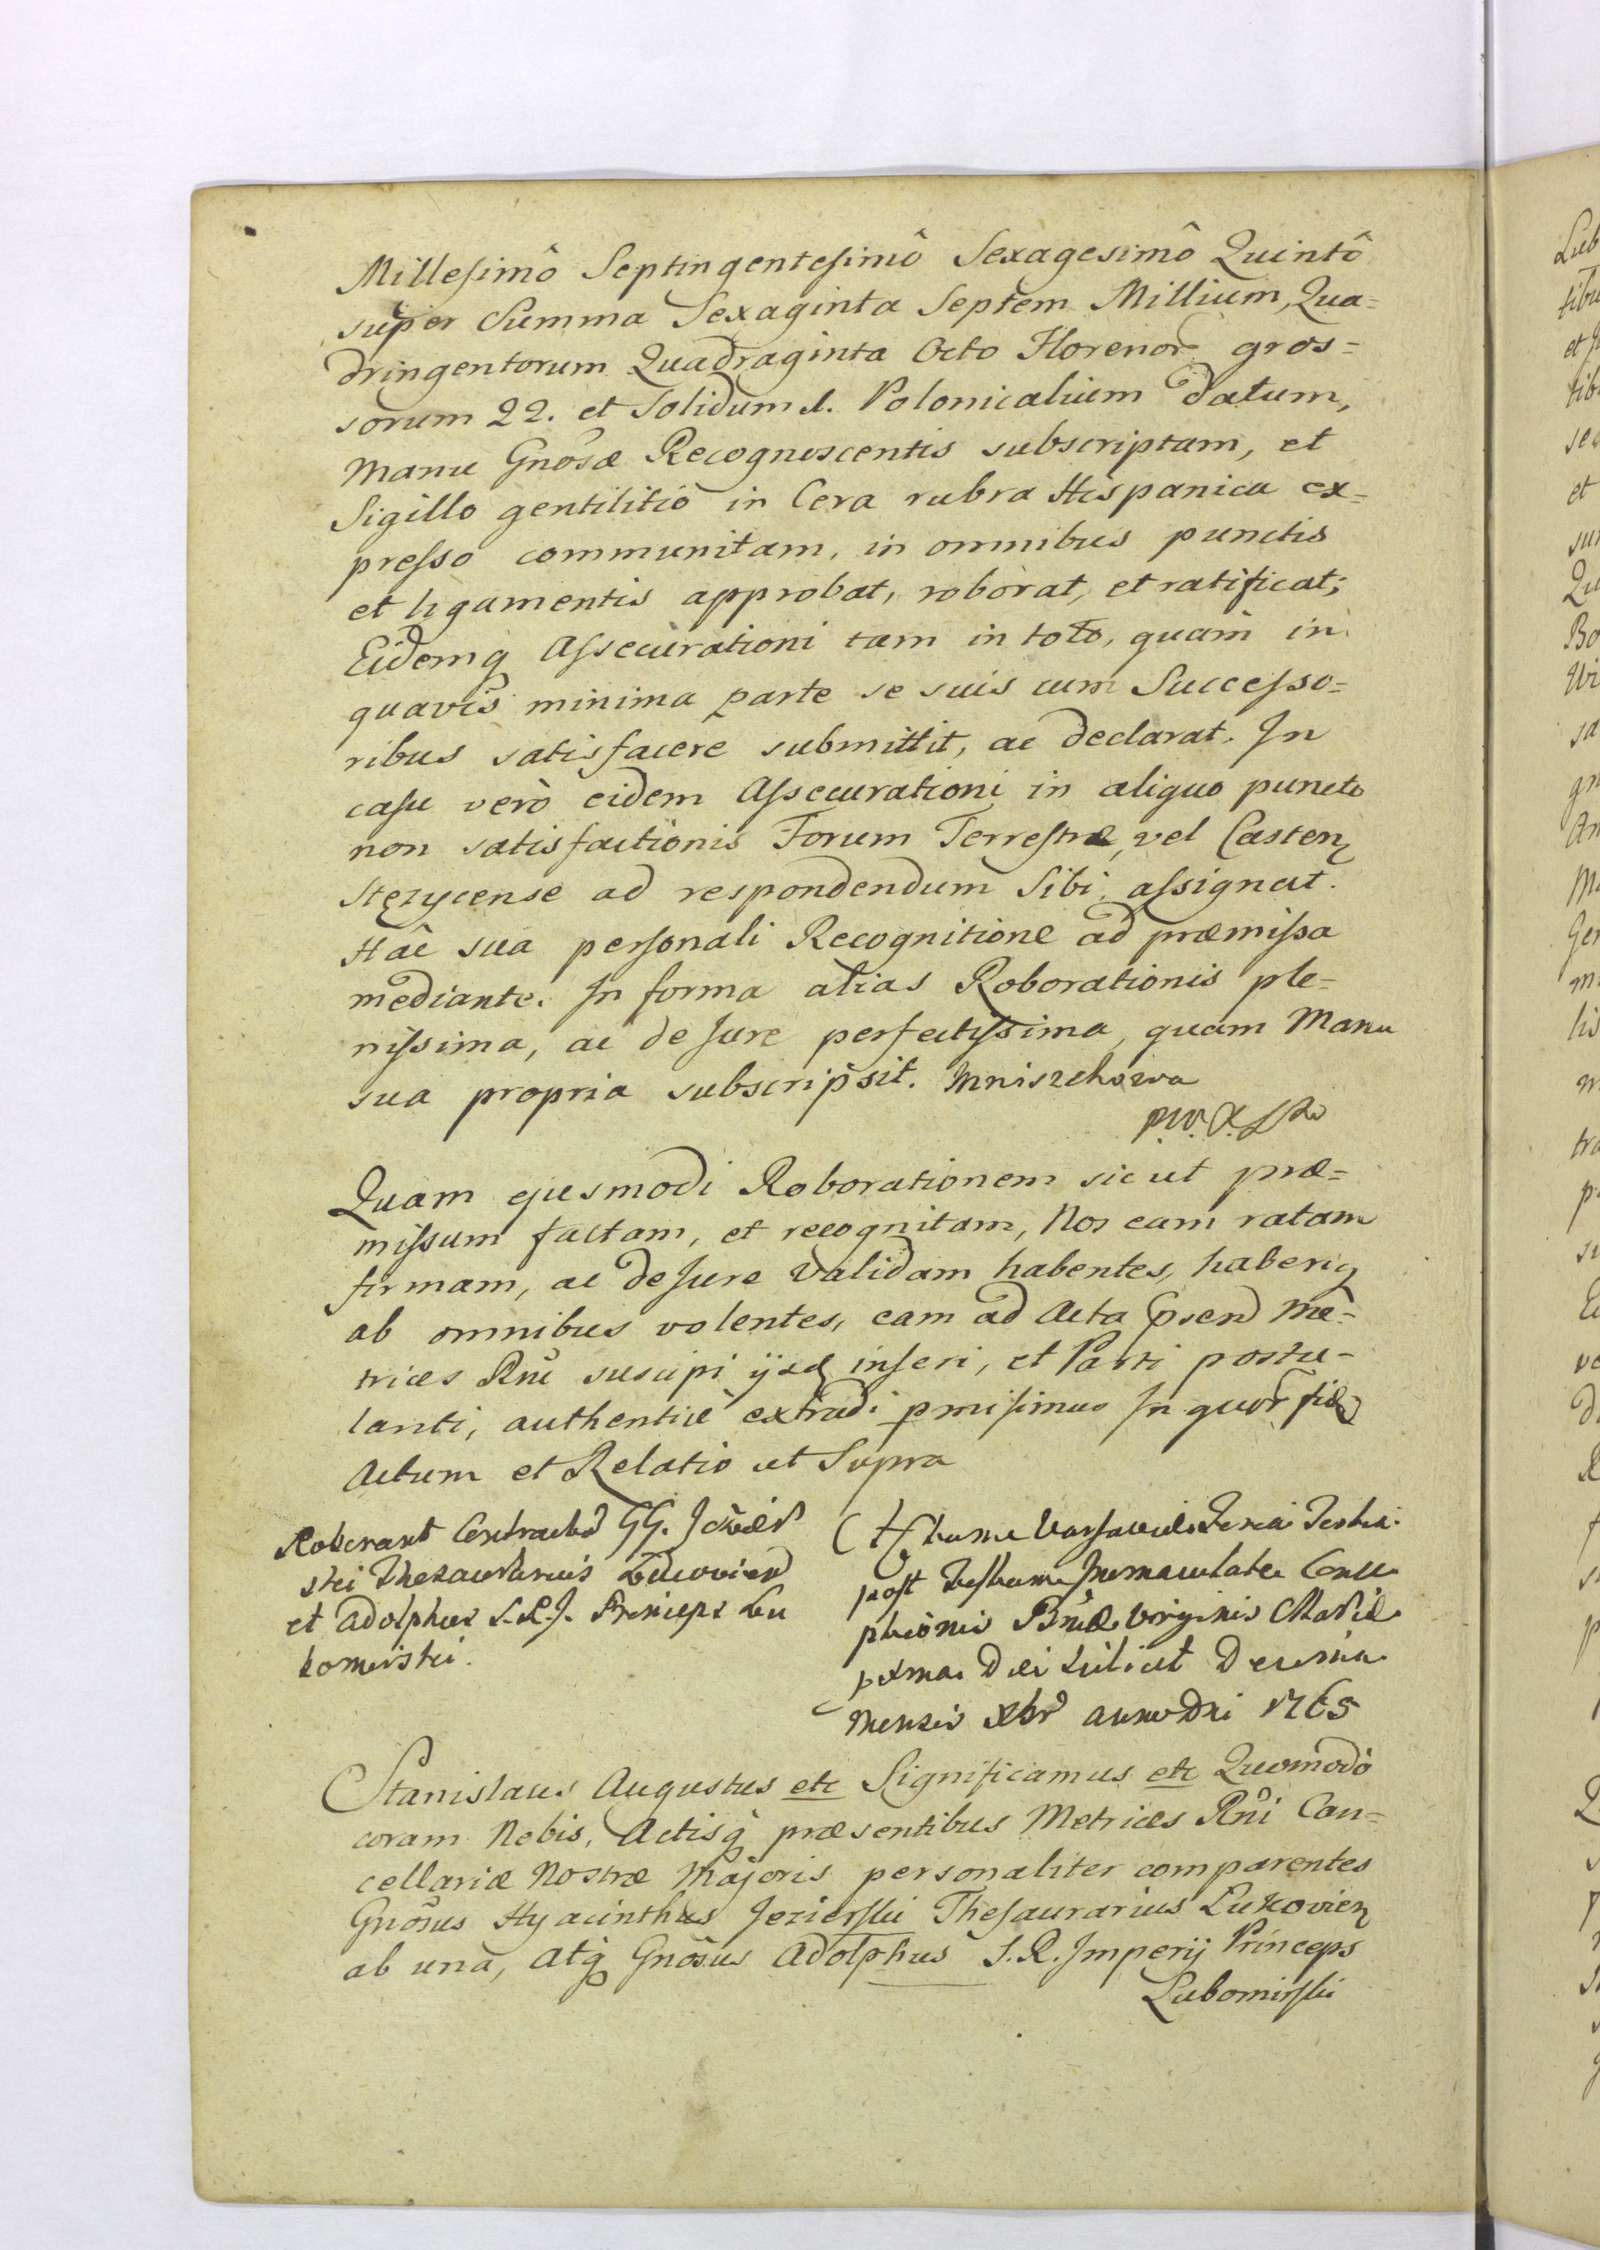 Millesimô Septingentesimô Sexagesimô Quintô
super Summa Sexaginta Septem Millium, Qua=
dringentorum Quadraginta Octo Florenor gros=
sorum 22. et Solidum 1. Polonicalium datum,
Manu Gnosæ Recognoscentis subscriptam, et
Sigillo gentilitio in Cera rubra Hispanica ex=
presso communitam, in omnibus punctis
et ligamentis approbat, roborat, et ratificat;
Eidemq Assecurationi tam in toto, quam in
quavis minima parte se suis cum Successo=
ribus satisfacere submittit, ac declarat. In
casu verò eidem Assecurationi in aliquo puncto
non satisfactionis Forum Terrestræ, vel Casten
Stęzycense ad respondendum Sibi assignat.
Hâc sua personali Recognitione ad præmissa
mediante. In forma alias Roborationis ple=
nissima, ac de Jure perfectissima, quam Manu
sua propria subscripsit. Mniszchowa
P.W.X.L
Quam ejusmodi Roborationem sicut præ=
missum factam, et recognitam, Nos eam ratam
firmam, ac de Jure validam habentes, haberiq
ab omnibus volentes, eam ad Acta psen Me=
trices Rni suscipi ijsdq inseri, et Parti postu=
lanti, authenticè extradi pmisimus In quor fid
Actum et Relatio ut Supra
Roborant Contractū GG. Jezier
ski Thesaurarius Lucovien
et Adolphus S.R.J. Princeps Lu
bomirski.
Actum Varsaviæ Feria Tertia
post Festum Immaculatæ Conce
ptionis Bnæ Virginis Mariæ
pxma Die scilicet Decima
Mensis Xbr anno Dni 1765
Stanislaus Augustus etc Significamus etc Quomodò
coram Nobis, Actisq præsentibus Metrices Rni Can=
cellariæ Nostræ Majoris personaliter comparentes
Gnosus Hyacinthus Jezierski Thesaurarius Lukovien
ab una, Atq Gnosus Adolphus S.R. Imperij Princeps
Lubomirski